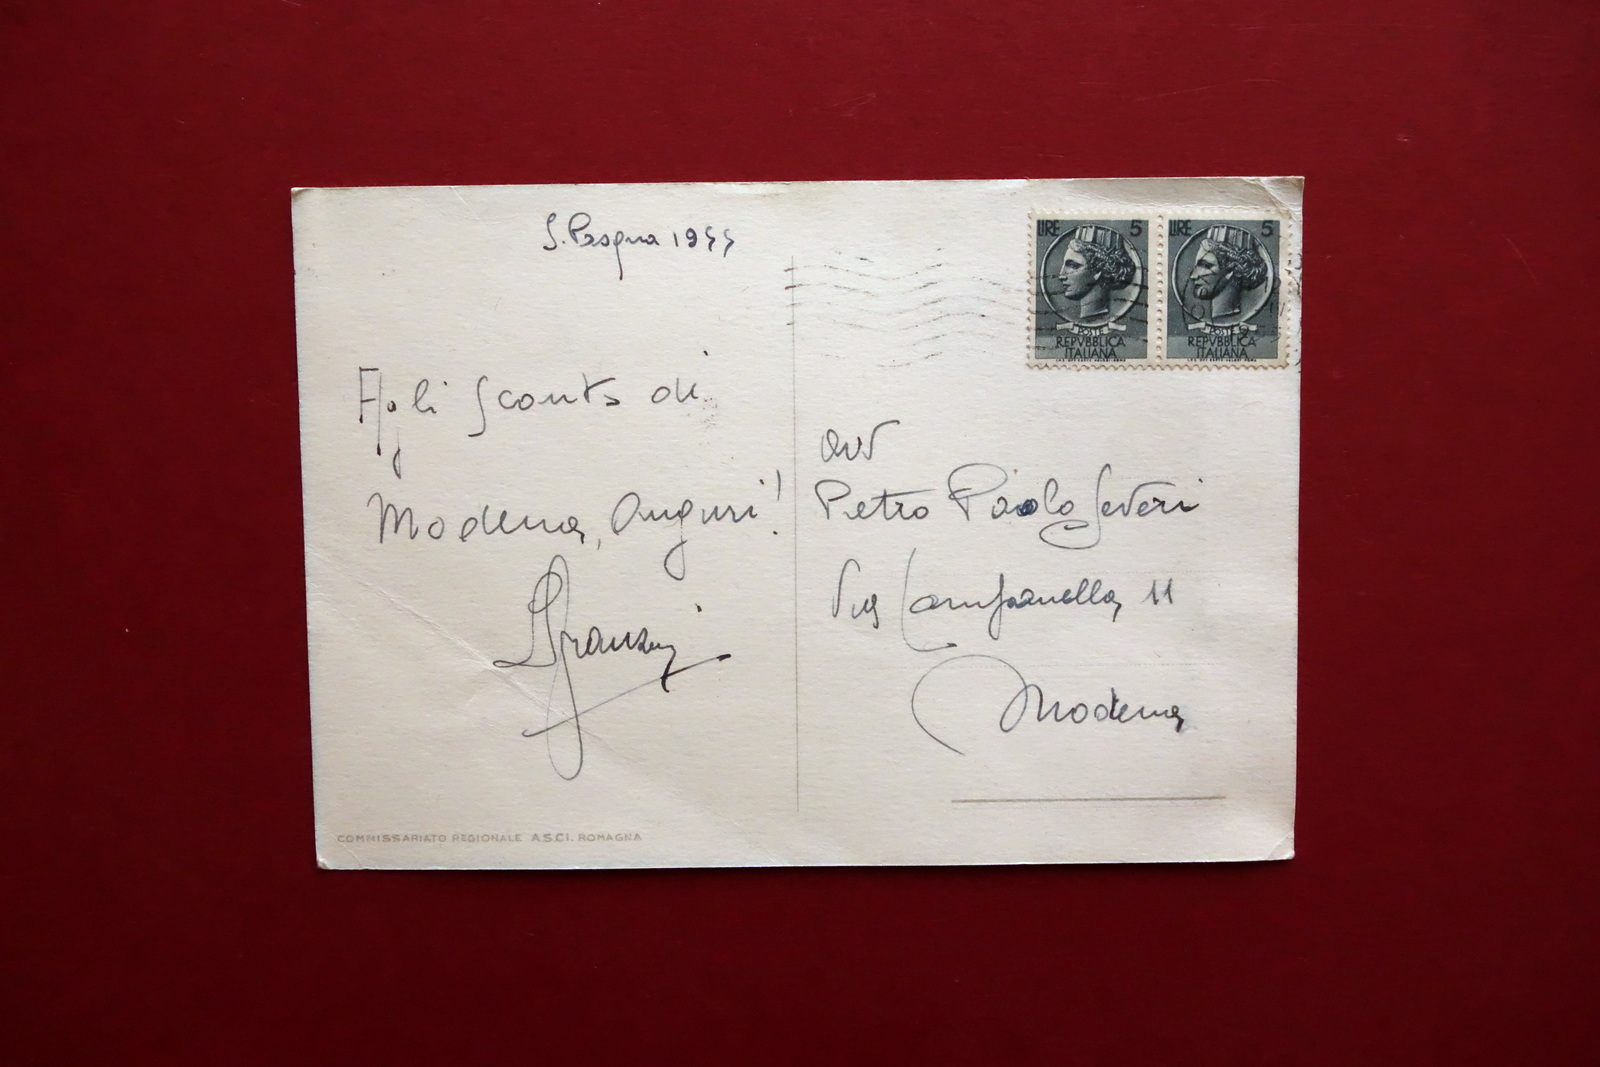 S. Pasqua 1955
Agli Scouts di
Modena, Auguri!
COMMISSARIATO REGIONALE A.S.C.I. ROMAGNA
LIRE 5
POSTE
REPVBBLICA
ITALIANA
LIRE 5
POSTE
REPVBBLICA
ITALIANA
avv
Pietro Paolo Severi
Via Campanella 11
Modena